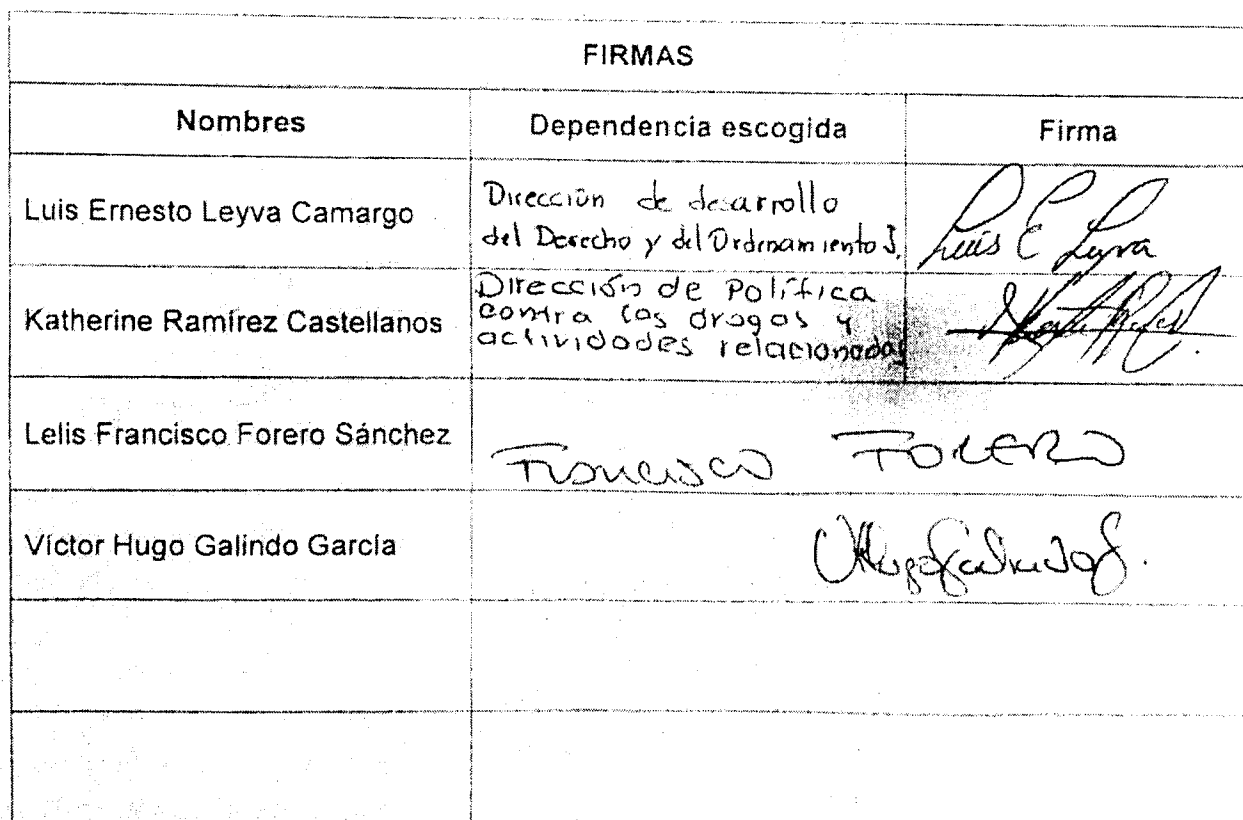 FIRMAS
Nombres Dependencia escogida Firma
Luis Ernesto Leyva Camargo
Dirección de desarrollo
del Derecho y del Ordenamiento J.
Luis E Leyva
Katherine Ramírez Castellanos
Dirección de Política
contra las drogas y
actividades relacionadas
Lelis Francisco Forero Sánchez
Francisco FORERO
Víctor Hugo Galindo García